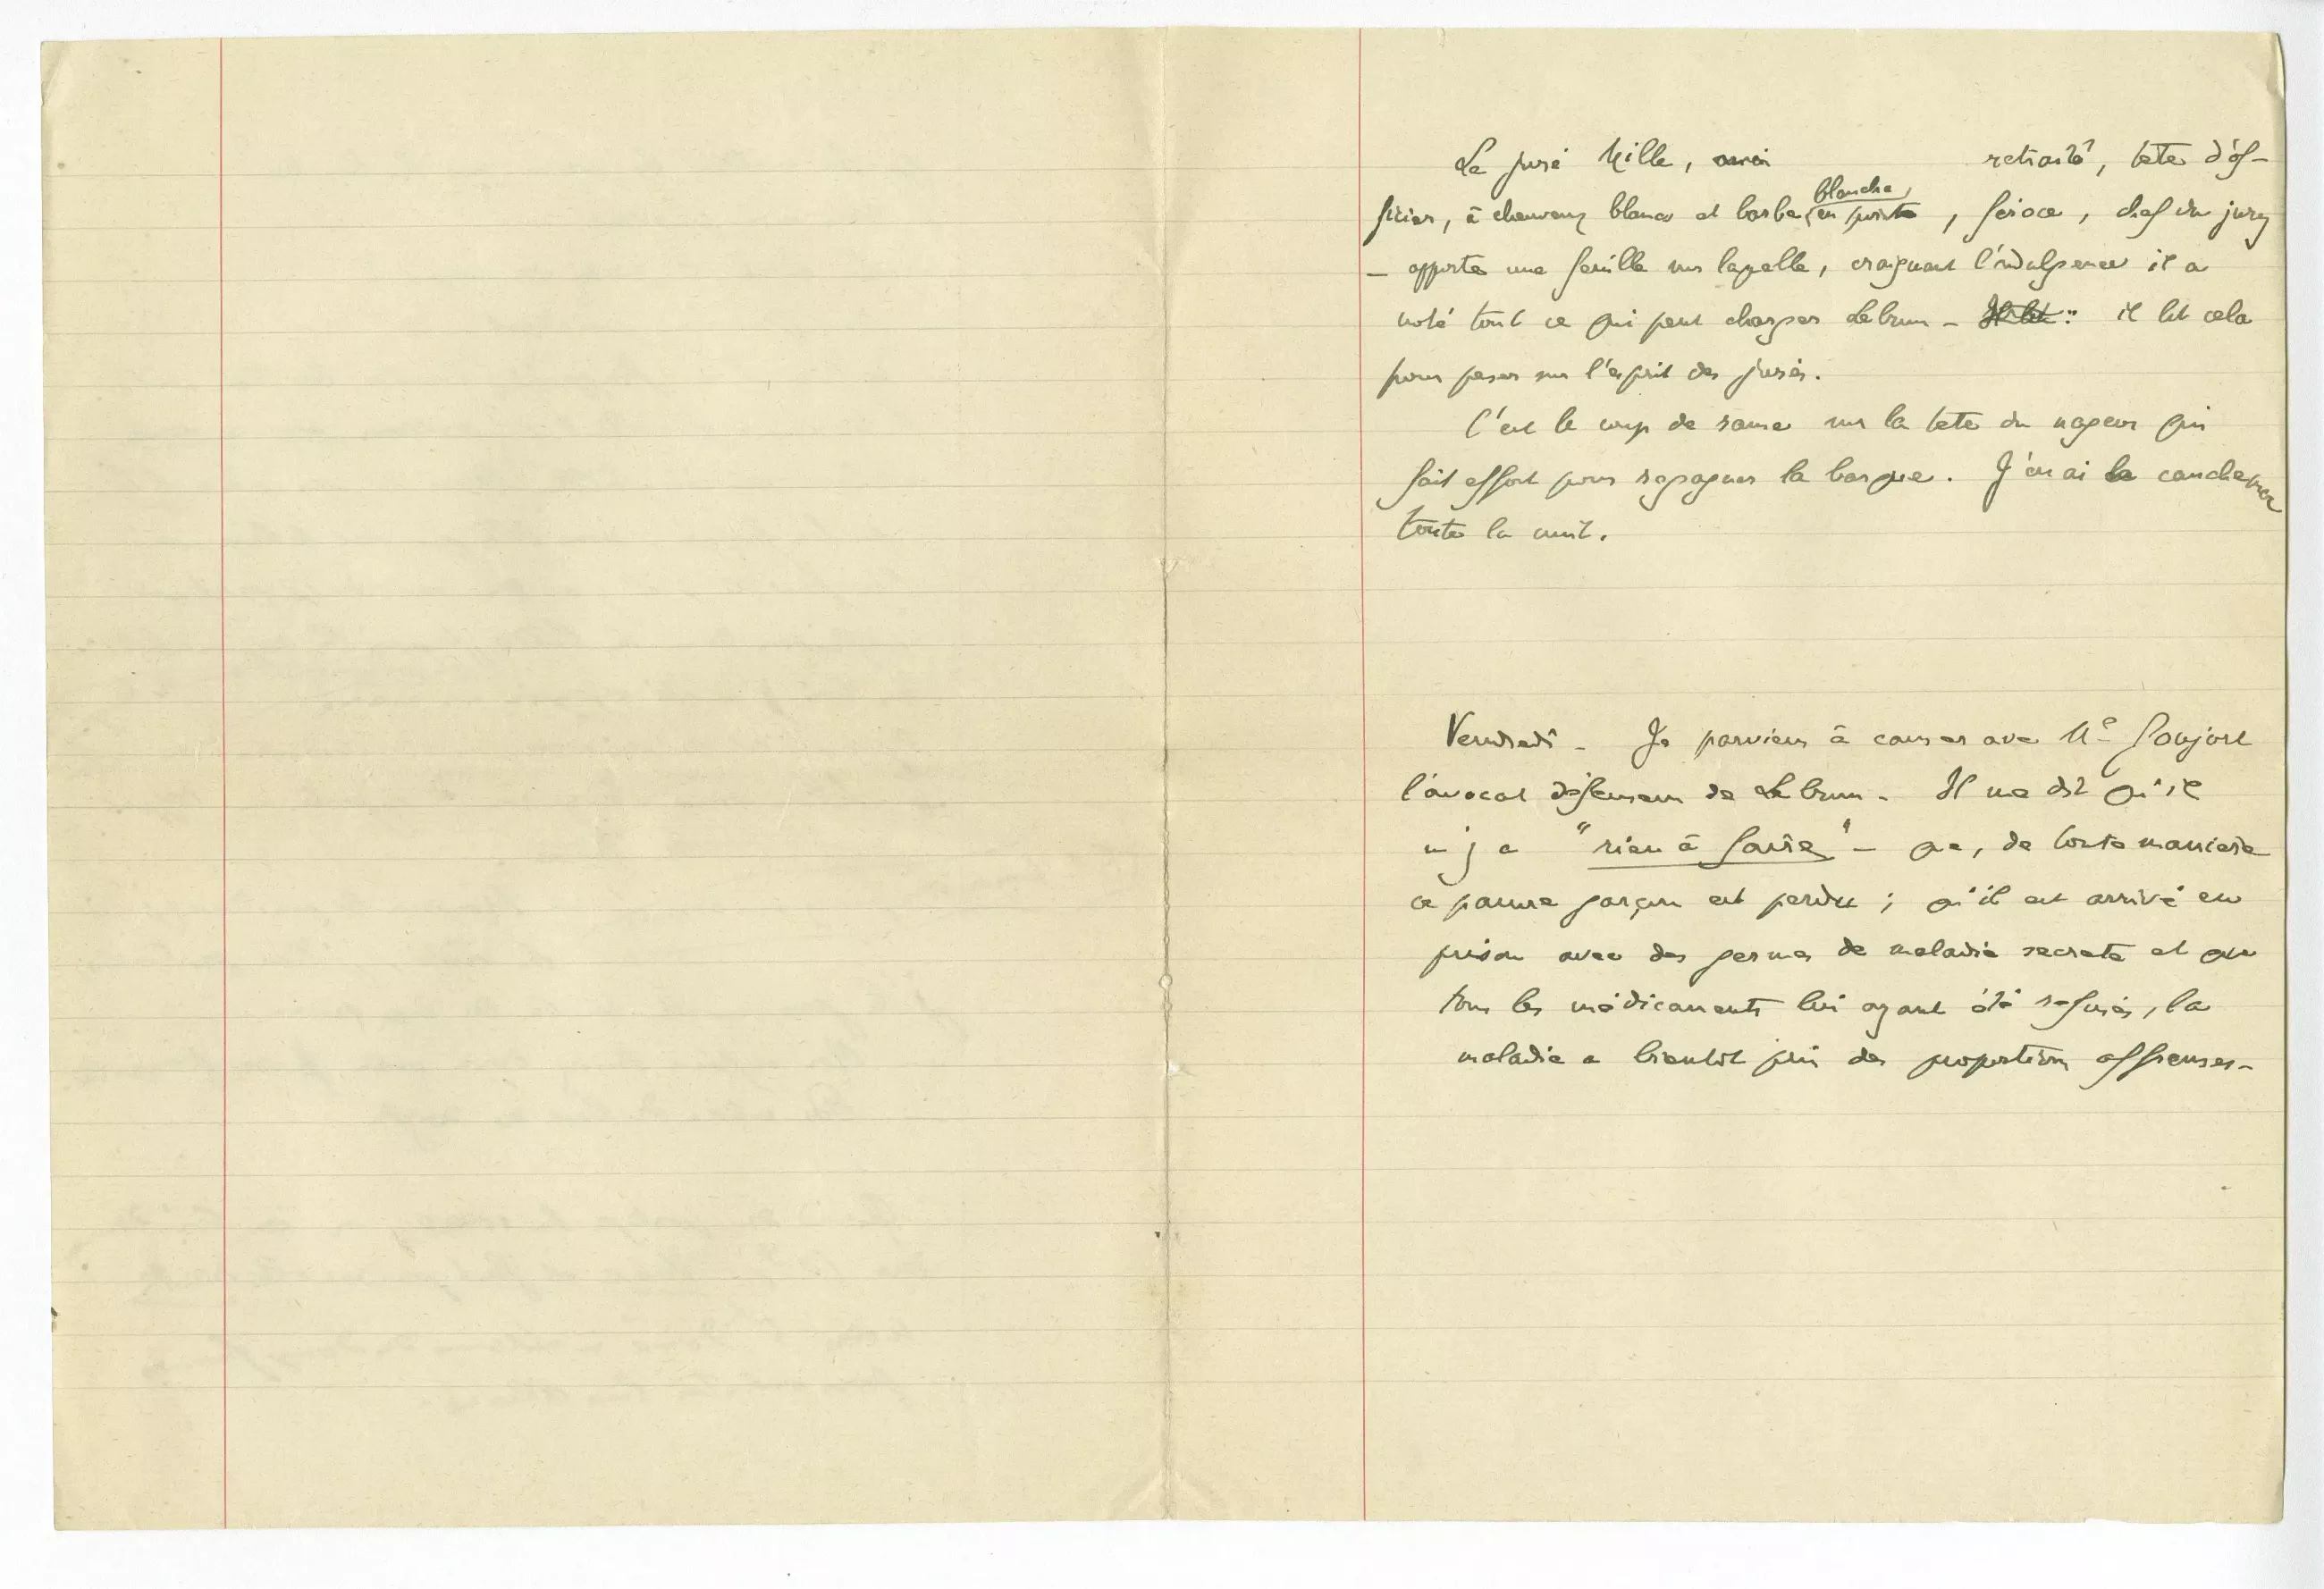 Le juré Mille, retraité, tete d'of-
ficier, à cheveux blancs et barbe blanche, en pointe, féroce, chef du jury
— apporte une feuille sur laquelle, craignant l'indulgence il a
noté tout ce qui peut charger Lebrun – il lit cela
pour peser sur l'esprit des jurés.
C'est le coup de rame sur la tete du nageur qui
fait effort pour regagner la barque. J'en ai le cauchemar
toute la nuit.
Vendredi – Je parviens à causer avec Me
l'avocat défenseur de Lebrun – Il me dit qu'il
n'y a "rien à faire" – que, de toute manière
ce pauvre garçon est perdu ; qu'il est arrivé en
prison avec des germes de maladie secrete et que
tous les médicaments lui ayant été refusés, la
maladie a bientôt pris des proportions affreuses –